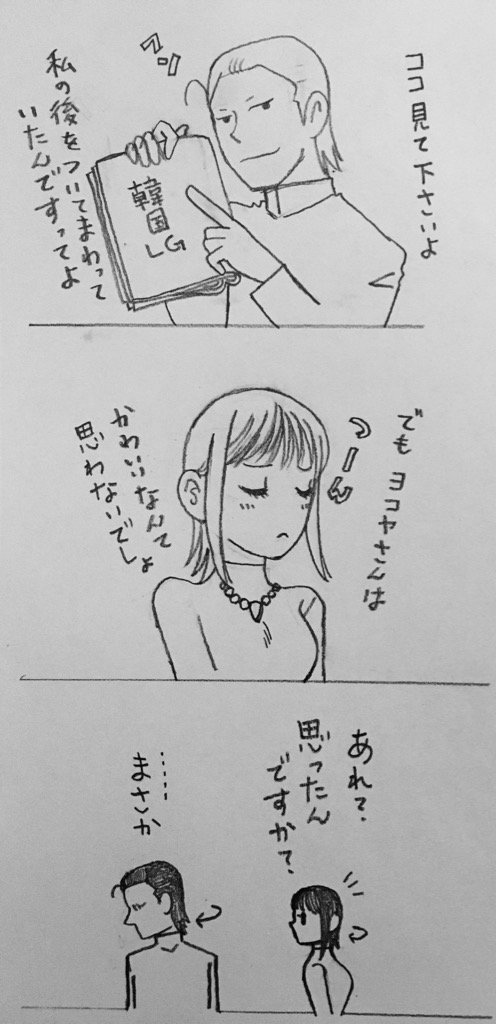 ココ見て下さいよ
フフン
韓国
LG
私の後をついてまわって
いたんですってよ
でもヨコヤさんは
つーん
かわいいなんて
思わないでしょ
あれ？
思ったん
ですか？
……
まさか